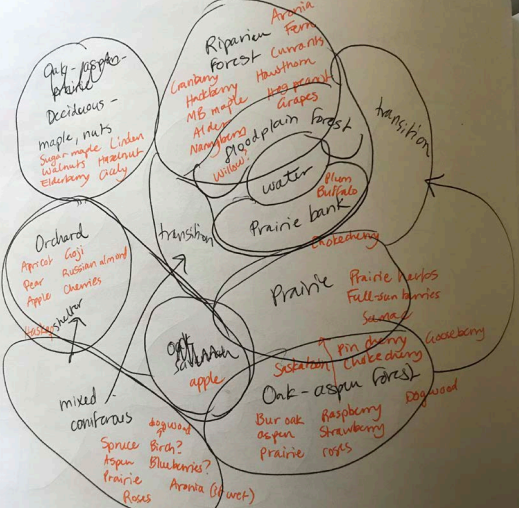 Oak-aspen-
prairie
Deciduous -
maple, nuts
Sugar maple Linden
Walnuts Hazelnut
Elderberry Cicely
Riparian
Forest
Aronia
Fern
Currants
Cranberry
Hackberry
MB maple
Alder
Nannyberry
Hawthorn
Hog peanut
Grapes
floodplain forest
Willow?
water
Plum
Buffalo
Prairie bank
transition
transition
Chokecherry
Orchard
Apricot Goji
Pear Russian almond
Apple Cherries
Haskap
shelter
Prairie
Prairie herbs
Full-sun berries
Sumac
oak
savannah
apple
Saskatoon
Pin cherry
Chokecherry
Gooseberry
Oak-aspen forest
Dogwood
Bur oak Raspberry
aspen Strawberry
Prairie roses
mixed-
coniferous
dogwood
Spruce Birch?
Aspen Blueberries?
Prairie
Roses
Aronia (if wet)